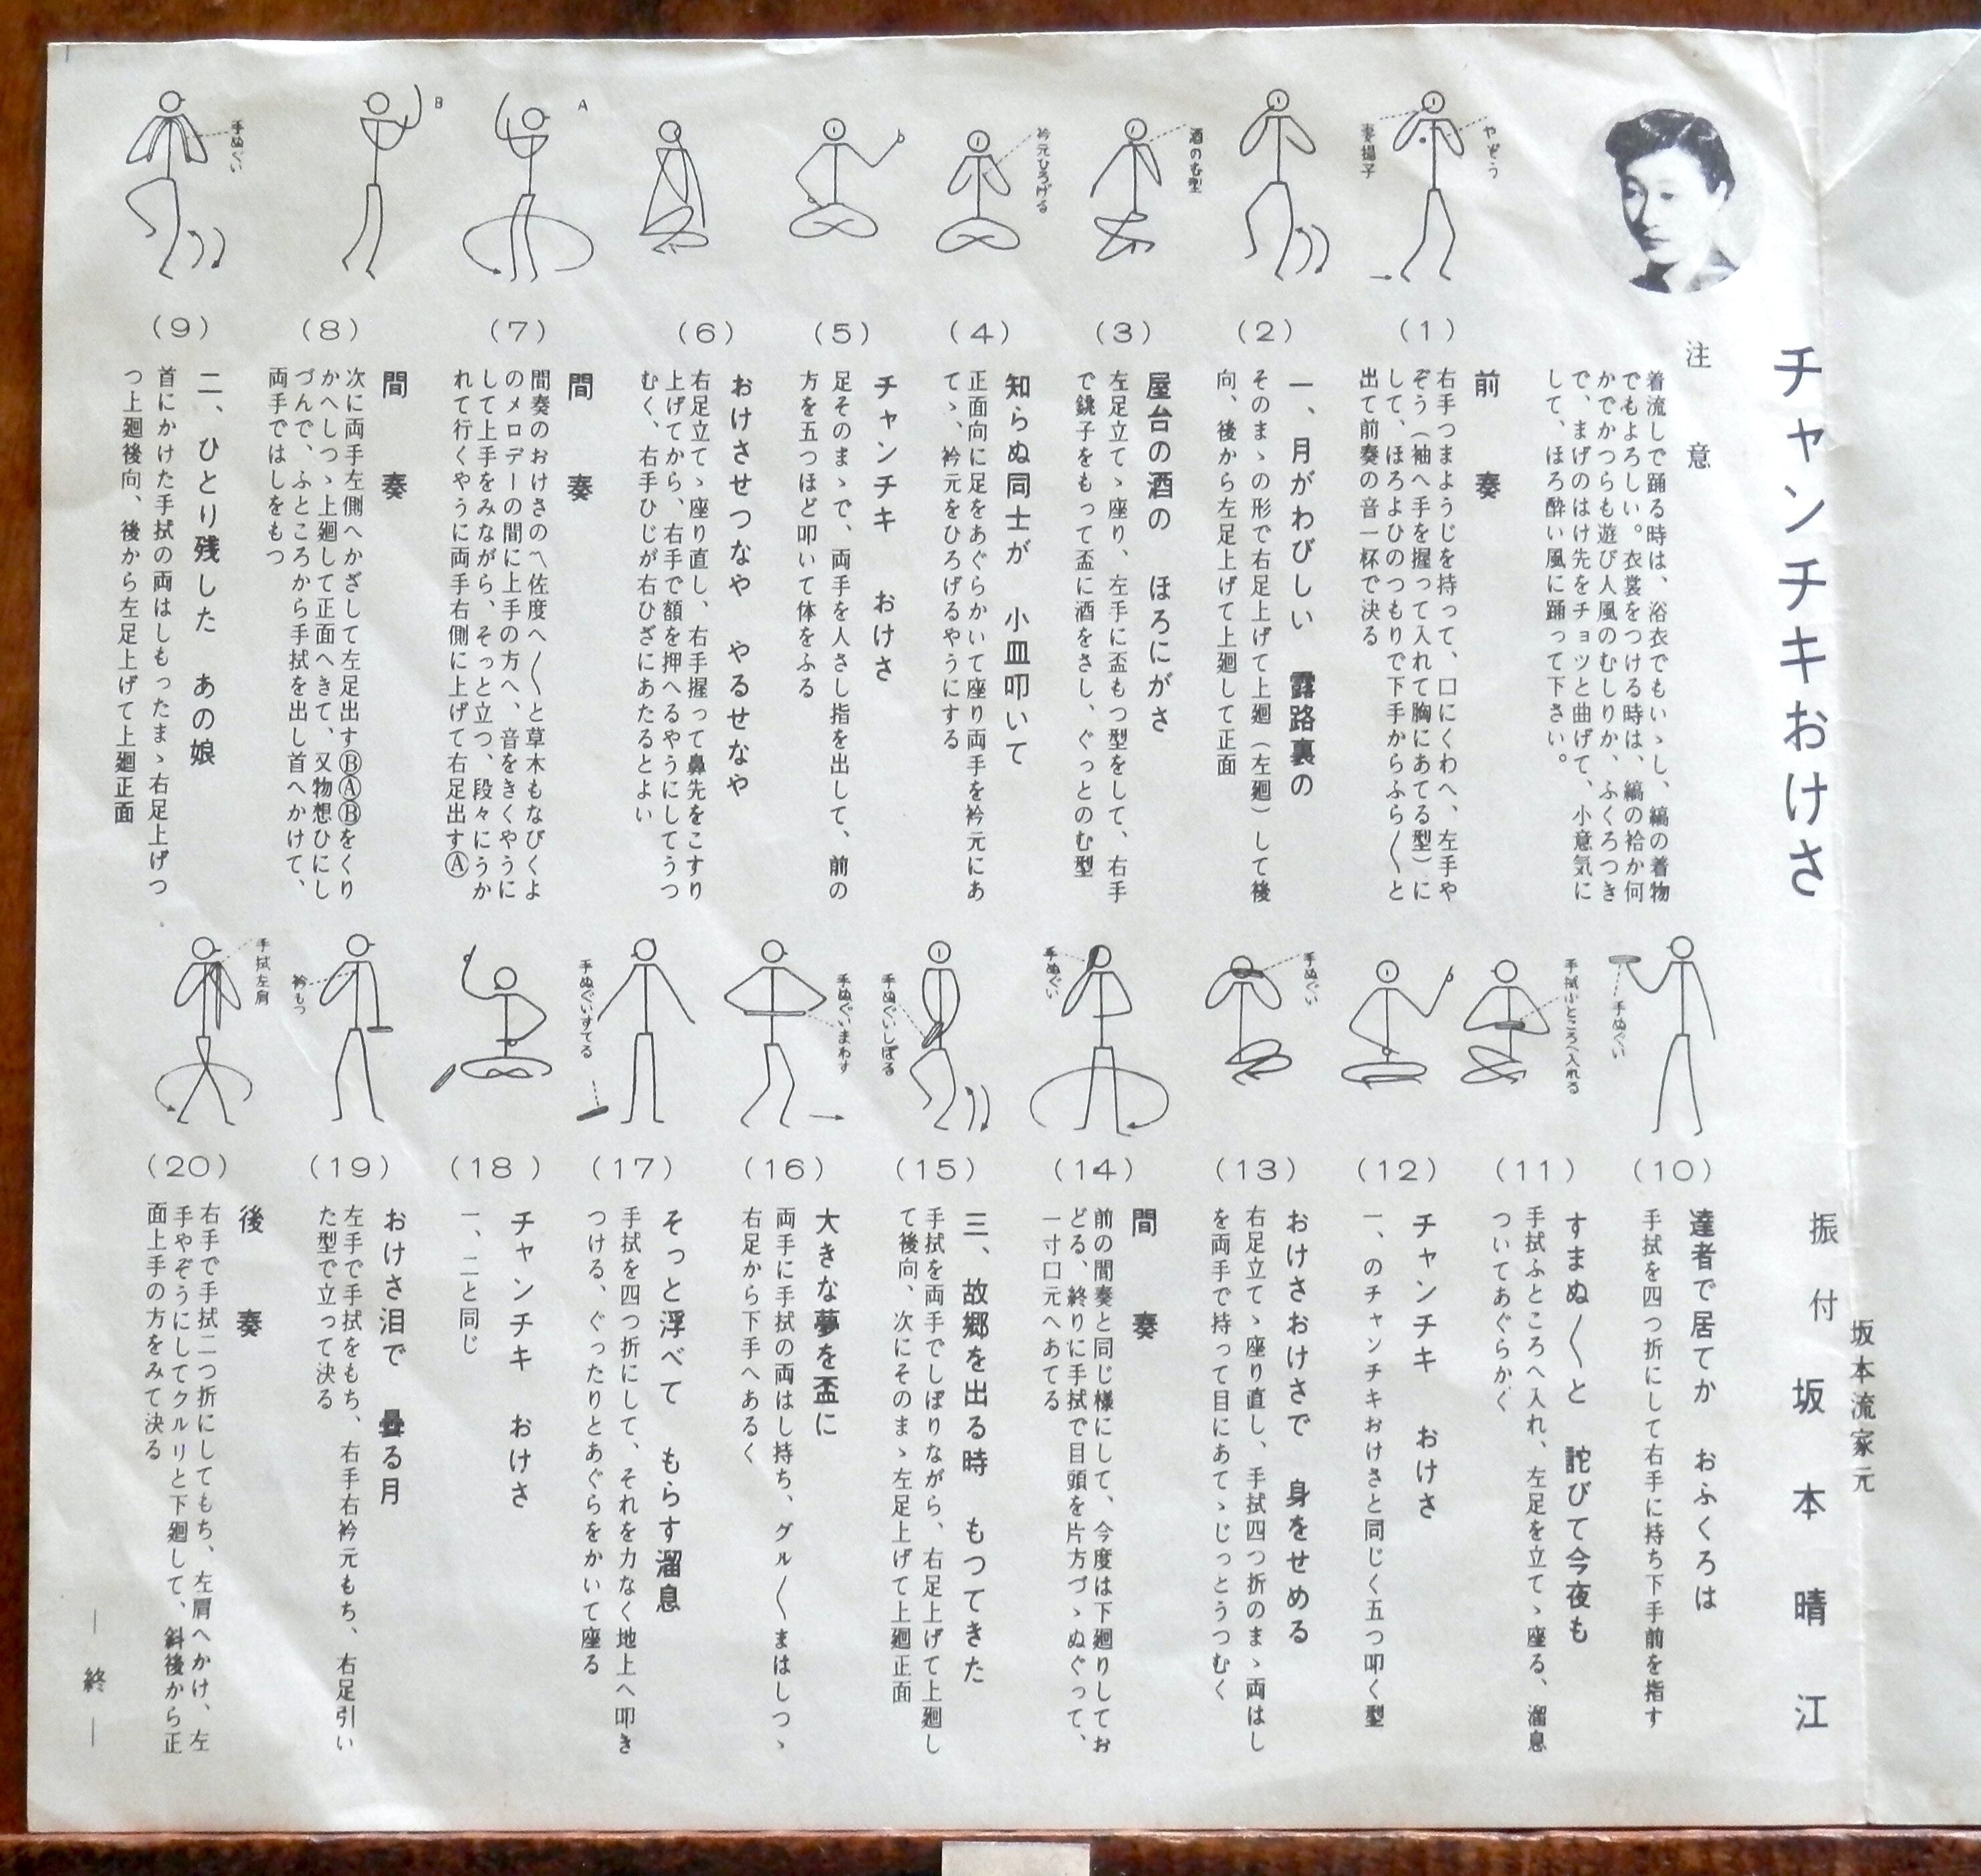 チャンチキおけさ
振付 坂本晴江
坂本流家元
注意
着流しで踊る時は、浴衣でもいゝし、縞の着物
でもよろしい。衣裳をつける時は、縞の袷か何
かでかつらも遊び人風のむしりか、ふくろつき
で、まげのはけ先をチョッと曲げて、小意気に
して、ほろ酔い風に踊って下さい。
やぞう
妻揚子
(1)
前奏
右手つまようじを持って、口にくわへ、左手や
ぞう（袖へ手を握って入れて胸にあてる型）に
して、ほろよひのつもりで下手からふら〱と
出て前奏の音一杯で決る
(2)
一、月がわびしい 露路裏の
そのまゝの形で右足上げて上廻（左廻）して後
向、後から左足上げて上廻して正面
酒のむ型
(3)
屋台の酒の ほろにがさ
左足立てゝ座り、左手に盃もつ型をして、右手
で銚子をもって盃に酒をさし、ぐっとのむ型
衿元ひろげる
(4)
知らぬ同士が 小皿叩いて
正面向に足をあぐらかいて座り両手を衿元にあ
てゝ、衿元をひろげるやうにする
(5)
チャンチキ おけさ
足そのまゝで、両手を人さし指を出して、前の
方を五つほど叩いて体をふる
(6)
おけさせつなや やるせなや
右足立てゝ座り直し、右手握って鼻先をこすり
上げてから、右手で額を押へるやうにしてうつ
むく、右手ひじが右ひざにあたるとよい
A
(7)
間奏
間奏のおけさの〽佐度へ〱と草木もなびくよ
のメロデーの間に上手の方へ、音をきくやうに
して上手をみながら、そっと立つ、段々にうか
れて行くやうに両手右側に上げて右足出すⒶ
B
(8)
間奏
次に両手左側へかざして左足出すⒷⒶⒷをくり
かへしつゝ上廻して正面へきて、又物想ひにし
づんで、ふところから手拭を出し首へかけて、
両手ではしをもつ
手ぬぐい
(9)
二、ひとり残した あの娘
首にかけた手拭の両はしもったまゝ右足上げつ
つ上廻後向、後から左足上げて上廻正面
手ぬぐい
(10)
達者で居てか おふくろは
手拭を四つ折にして右手に持ち下手前を指す
手拭ふところへ入れる
(11)
すまぬ〱と 詫びて今夜も
手拭ふところへ入れ、左足を立てゝ座る、溜息
ついてあぐらかく
(12)
チャンチキ おけさ
一、のチャンチキおけさと同じく五つ叩く型
手ぬぐい
(13)
おけさおけさで 身をせめる
右足立てゝ座り直し、手拭四つ折のまゝ両はし
を両手で持って目にあてゝじっとうつむく
手ぬぐい
(14)
間奏
前の間奏と同じ様にして、今度は下廻りしてお
どる、終りに手拭で目頭を片方づゝぬぐって、
一寸口元へあてる
手ぬぐいしぼる
(15)
三、故郷を出る時 もつてきた
手拭を両手でしぼりながら、右足上げて上廻し
て後向、次にそのまゝ左足上げて上廻正面
手ぬぐいまわす
(16)
大きな夢を盃に
両手に手拭の両はし持ち、グル〱まはしつゝ
右足から下手へあるく
手ぬぐいすてる
(17)
そっと浮べて もらす溜息
手拭を四つ折にして、それを力なく地上へ叩き
つける、ぐったりとあぐらをかいて座る
(18)
チャンチキ おけさ
一、二と同じ
衿もつ
(19)
おけさ泪で 曇る月
左手で手拭をもち、右手右衿元もち、右足引い
た型で立って決る
手拭左肩
(20)
後奏
右手で手拭二つ折にしてもち、左肩へかけ、左
手やぞうにしてクルリと下廻して、斜後から正
面上手の方をみて決る
―終―